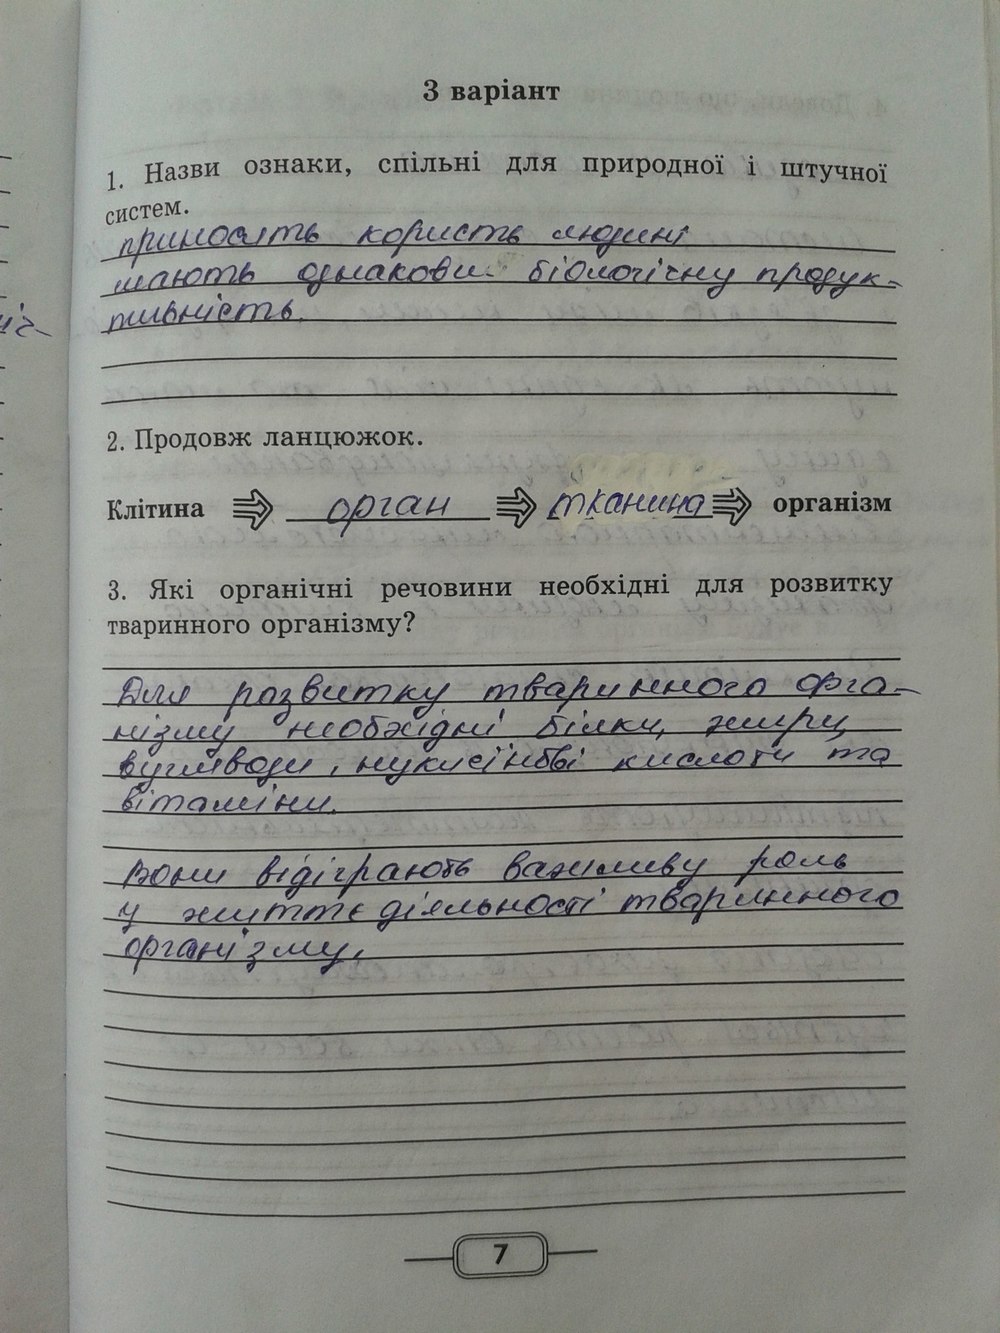 3 варіант
1. Назви ознаки, спільні для природної і штучної
систем.
приносять користь людині
мають однакови біологічну продук-
тивність.
2. Продовж ланцюжок.
Клітина орган тканина організм
3. Які органічні речовини необхідні для розвитку
тваринного організму?
Для розвитку тваринного орга-
нізму необхідні білки, жири,
вуглеводи, нуклеїнові кислоти та
вітаміни.
Вони відіграють важливу роль
у життєдіяльності тваринного
організму.
7